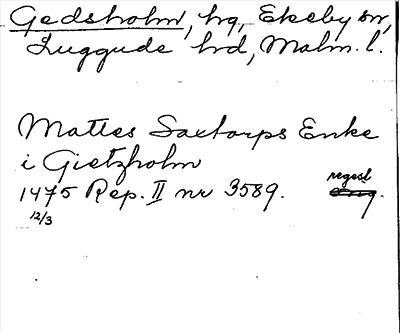 Gedsholm, hg, Ekeby sn,
Luggude hd, Malm. l.
Mattes Saxtorps Enke
i Gietzholm
regest
1475 Rep. II nr 3589. orig.
12/3